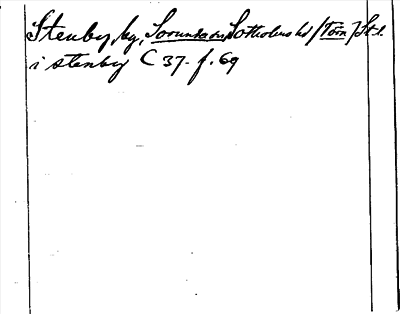 Stenby, bg, Sorunda sn, Sotholms hd /Törn/ St. l.
i stenby C 37. f. 69